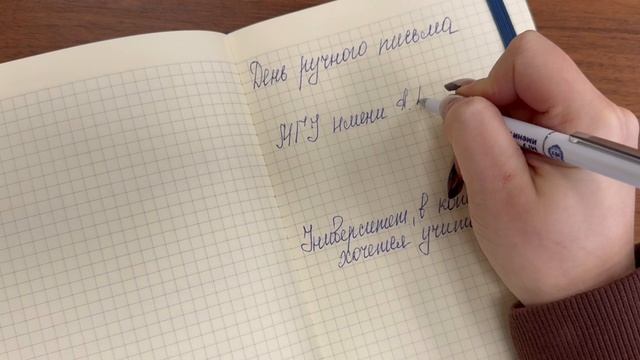 День ручного письма
МГУ имени А.
Университет, в
хочется